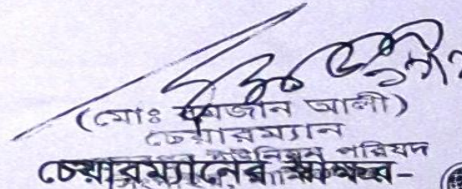 (মোঃ রমজান আলী)
চেয়ারম্যান
ইউনিয়ন পরিষদ
চেয়ারম্যানের স্বাক্ষর-